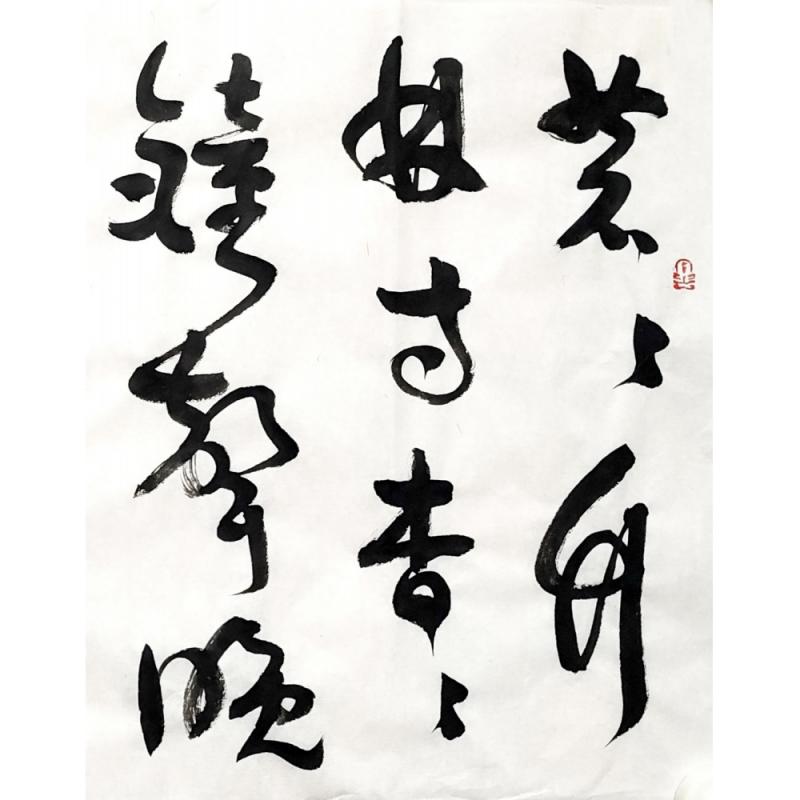 蒼〻竹
林寺杳〻
鐘聲晚